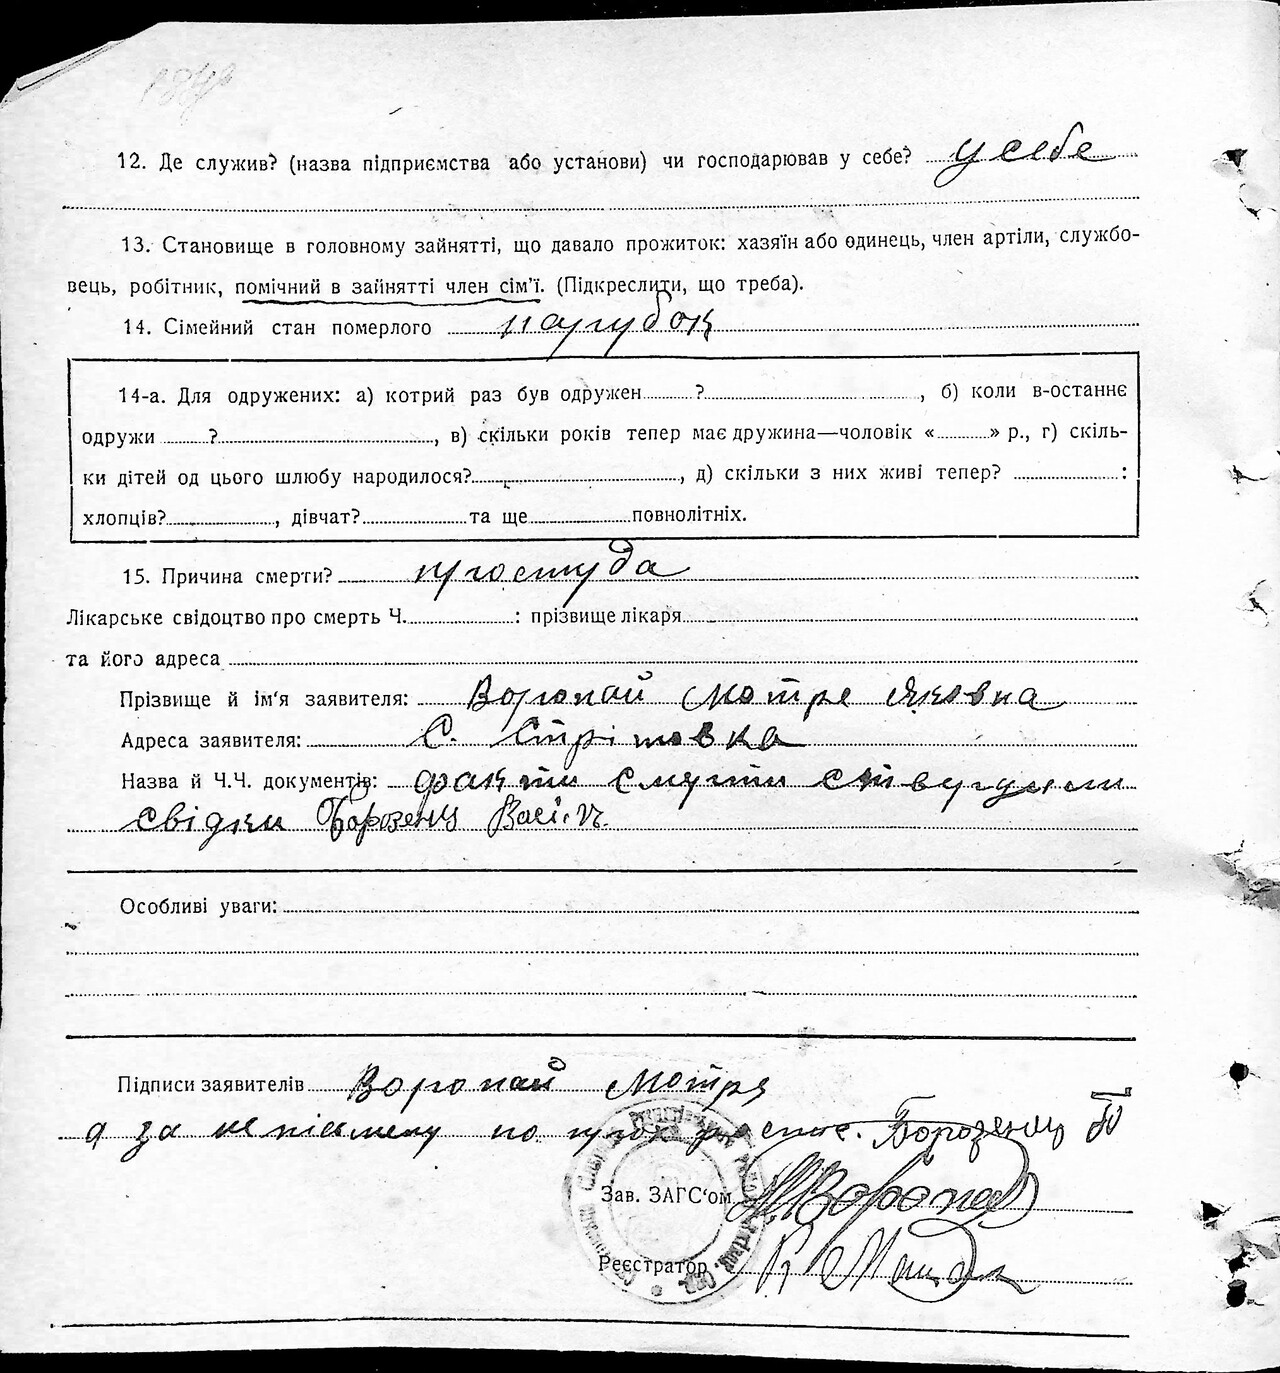 12. Де служив? (назва підприємства або установи) чи господарював у себе? у себе
13. Становище в головному зайнятті, що давало прожиток: хазяїн або одинець, член артіли, службо-
вець, робітник, помічний в зайнятті член сім'ї. (Підкреслити, що треба).
14. Сімейний стан померлого парубок
14-а. Для одружених: а) котрий раз був одружен ? , б) коли в-останнє
одружи ? , в) скільки років тепер має дружина—чоловік « » р., г) скіль-
ки дітей од цього шлюбу народилося? , д) скільки з них живі тепер? :
хлопців? , дівчат? та ще повнолітніх.
15. Причина смерти? простуда
Лікарське свідоцтво про смерть Ч. : прізвище лікаря
та його адреса
Прізвище й ім'я заявителя: Воропай Мотря Яковна
Адреса заявителя: С. Стрітовка
Назва й Ч.Ч. документів: факти смерти ствердили
свідки Борозенец
Особливі уваги:
Підписи заявителів Воропай Мотря
а за не письмену по Борозенец
Зав. ЗАГС'ом Воропай
Реєстратор